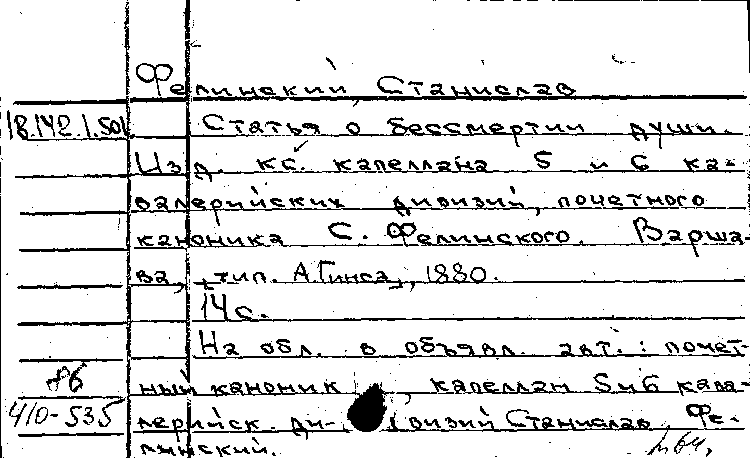 Фелинский, Станислав
18.142.1.501. Статья о бессмертии души.
Изд. кс. капеллана 5 и 6 ка-
валерийских дивизий, почетного
каноника С. Фелинского. Варша-
ва, тип. А. Гинса, 1880.
14 с.
На обл. в объявл. авт.: почет-
ный каноник, капеллан 5 и 6 кава-
410-535 лерийск. ди- визий Станислав Фе-
линский.